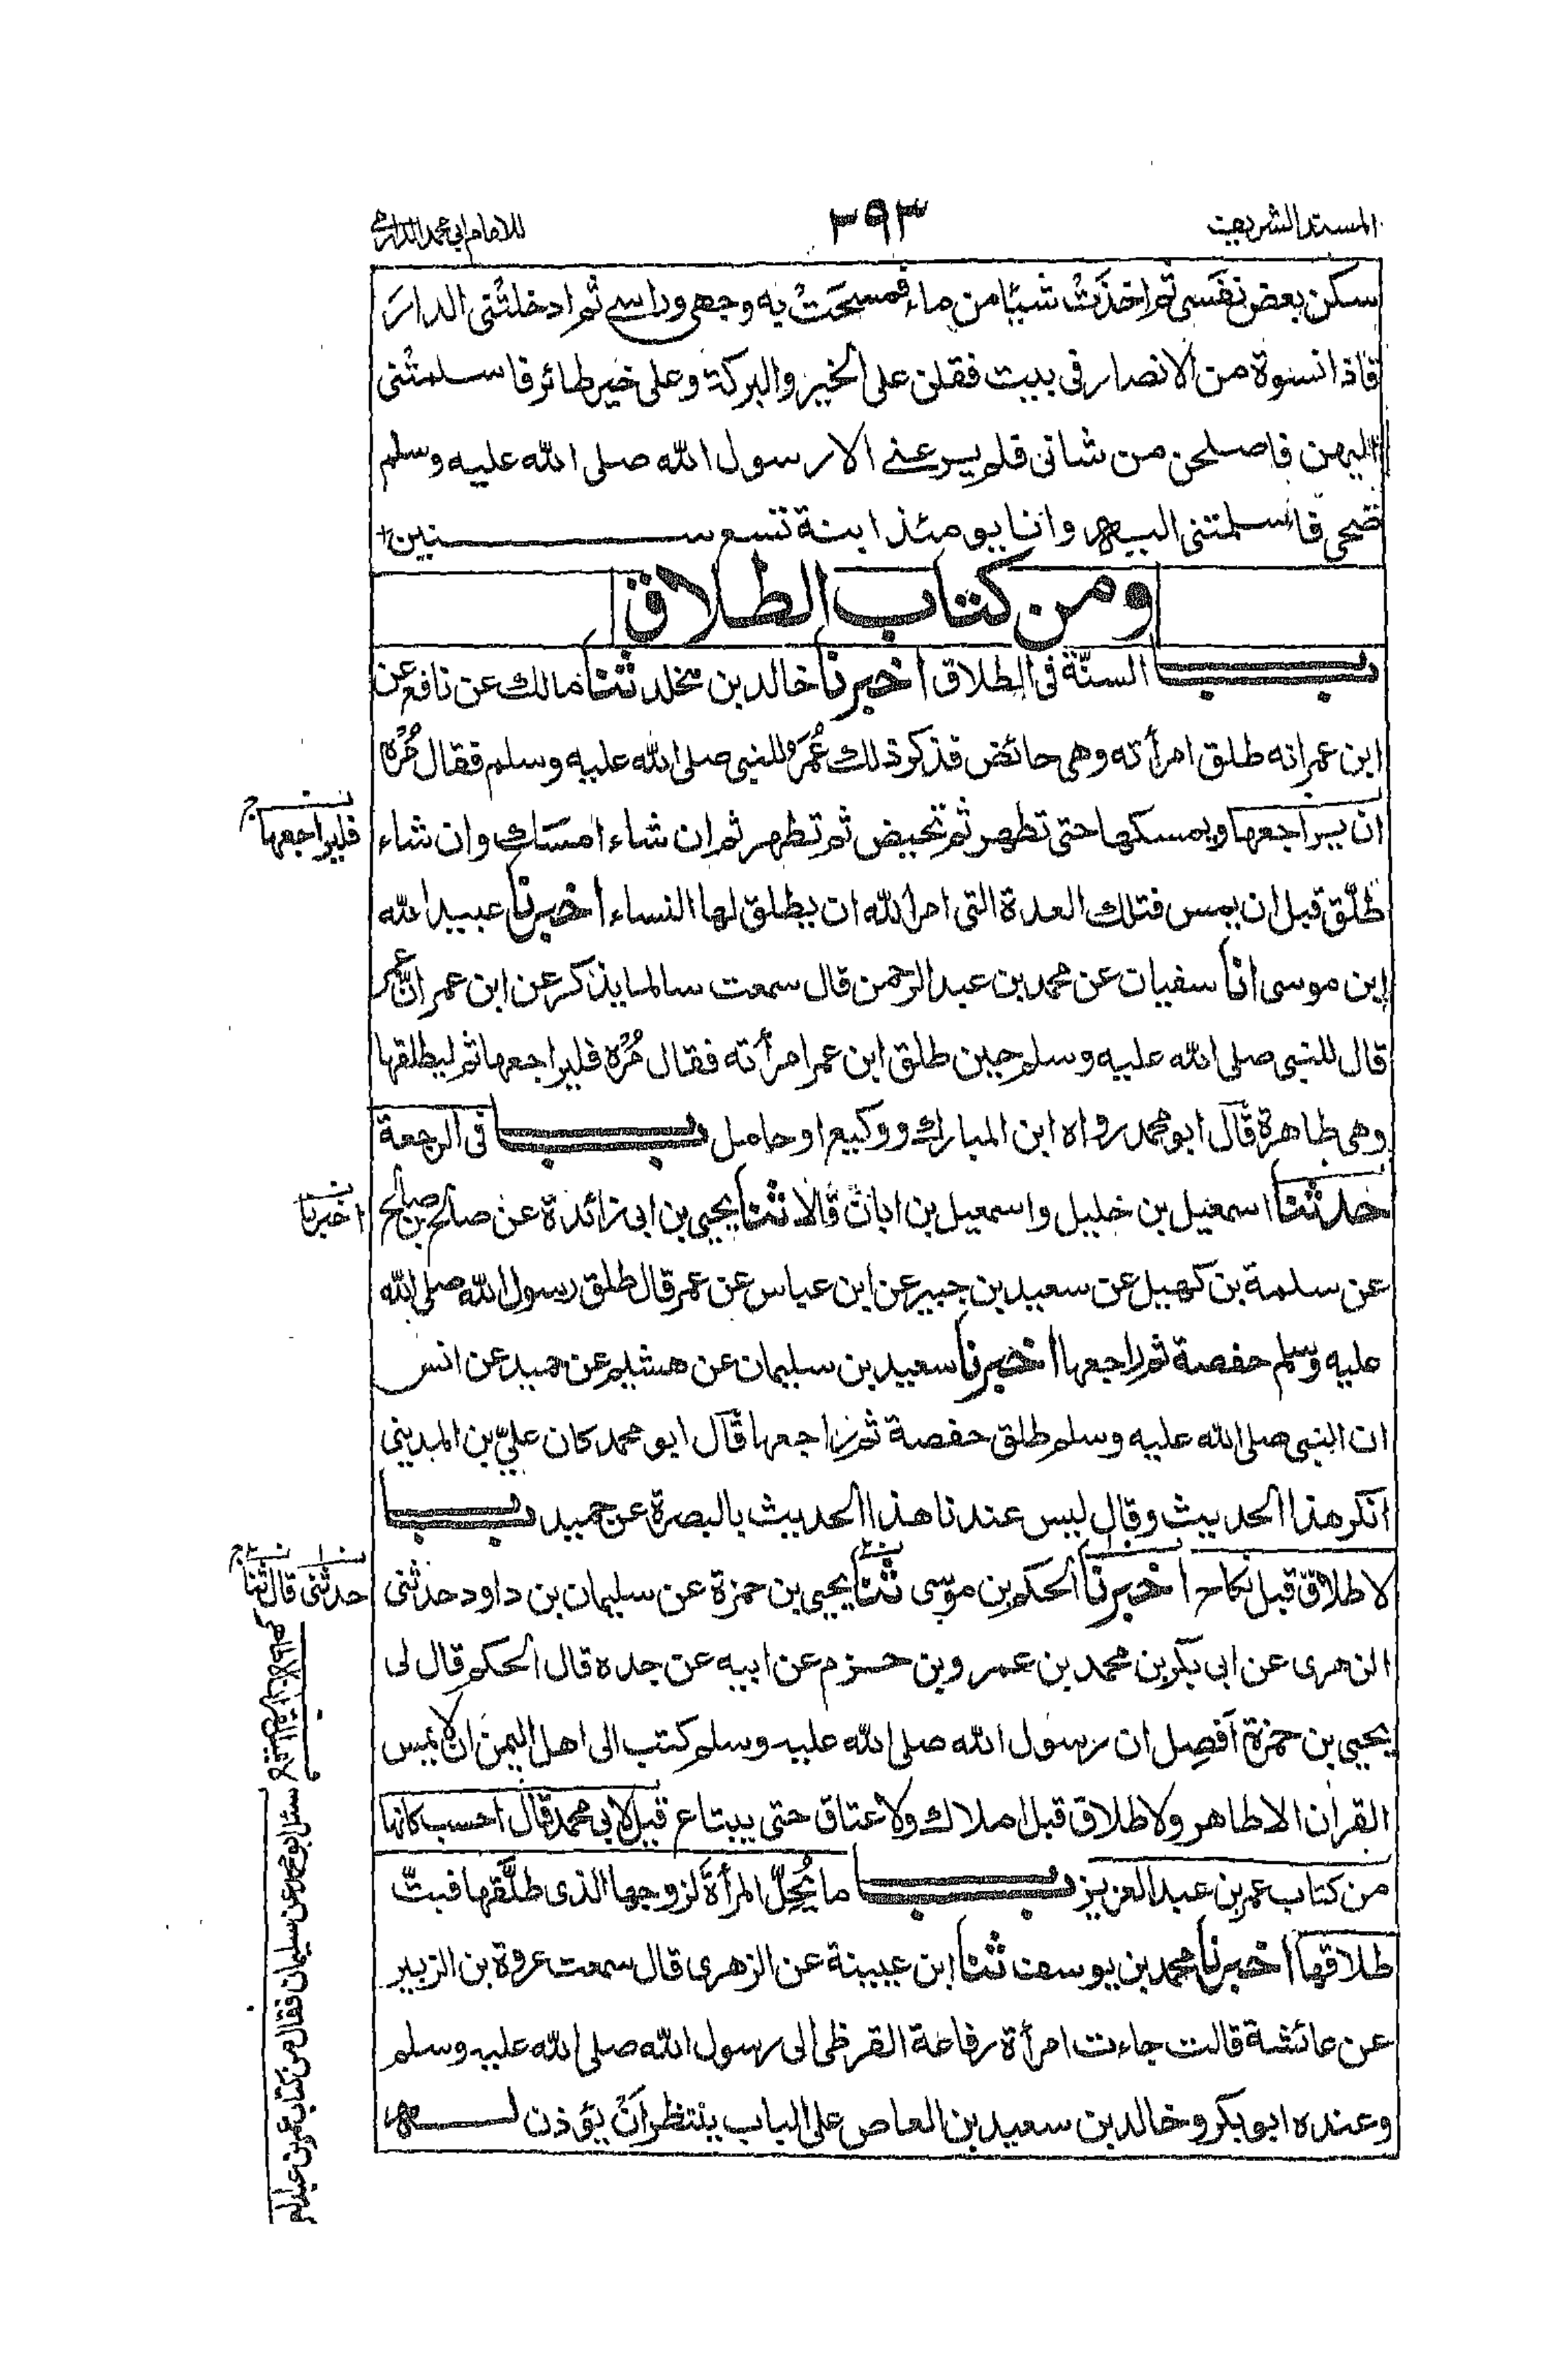 المسند الشريف
٢٩٣
للامام ابى محمد الدارمى
سكن بعض نفسى ثم اخذت شيئا من ماء فمسحت به وجهى وراسى ثم ادخلتنى الدار
فاذا نسوة من الانصار فى بيت فقلن على الخير والبركة وعلى خير طائر فاسلمتنى
اليهن فاصلحن من شانى فلم يرعنى الا رسول الله صلى الله عليه وسلم
ضحى فاسلمتنى اليه وانا يومئذ ابنة تسع سنين
ومن كتاب الطلاق
باب السنّة فى الطلاق اخبرنا خالد بن مخلد ثنا مالك عن نافع عن
ابن عمر انه طلق امرأته وهى حائض فذكر ذلك عُمَرُ للنبى صلى الله عليه وسلم فقال مُرْه
ان يراجعها ويمسكها حتى تطهر ثم تحيض ثم تطهر ثم ان شاء امسك وان شاء
فليراجعها
طلّق قبل ان يمس فتلك العدة التى امر الله ان يطلق لها النساء اخبرنا عبيد الله
ابن موسى انا سفيان عن محمد بن عبد الرحمن قال سمعت سالما يذكر عن ابن عمر انّ عمر
قال للنبى صلى الله عليه وسلم حين طلق ابن عمر امرأته فقال مُرْه فليراجعها ثم ليطلقها
وهى طاهرة قال ابو محمد رواه ابن المبارك ووكيع او حامل باب فى الرجعة
حدثنا اسمعيل بن خليل واسمعيل بن ابان قالا ثنا يحيى بن ابى زائدة عن صالح بن صالح
اخبرنا
عن سلمة بن كهيل عن سعيد بن جبير عن ابن عباس عن عمر قال طلق رسول الله صلى الله
عليه وسلم حفصة ثم راجعها اخبرنا سعيد بن سليمان عن هشيم عن حميد عن انس
ان النبى صلى الله عليه وسلم طلق حفصة ثم راجعها قال ابو محمد كان علىّ بن المدينى
انكر هذا الحديث وقال ليس عندنا هذا الحديث بالبصرة عن حميد باب
لا طلاق قبل نكاح اخبرنا الحكم بن موسى ثنا يحيى بن حمزة عن سليمان بن داود حدثنى
حدثنى قال ثنا
الزهرى عن ابى بكر بن محمد بن عمرو بن حزم عن ابيه عن جده قال الحكم قال لى
يحيى بن حمزة آفصل ان رسول الله صلى الله عليه وسلم كتب الى اهل اليمن ان لا يمس
القران الا طاهر ولا طلاق قبل املاك ولا عتاق حتى يبتاع قيل لابى محمد قال احسب كانها
من كتاب عمر بن عبد العزيز باب ما يُحِلّ المرأةَ لزوجها الذى طلّقها فبتّ
طلاقها اخبرنا محمد بن يوسف ثنا ابن عيينة عن الزهرى قال سمعت عروة بن الزبير
عن عائشة قالت جاءت امرأة رفاعة القرظى الى رسول الله صلى الله عليه وسلم
وعنده ابو بكر وخالد بن سعيد بن العاص على الباب ينتظر ان يؤذن له
سئل ابو محمد عن سليمان فقال من كتاب عمر بن